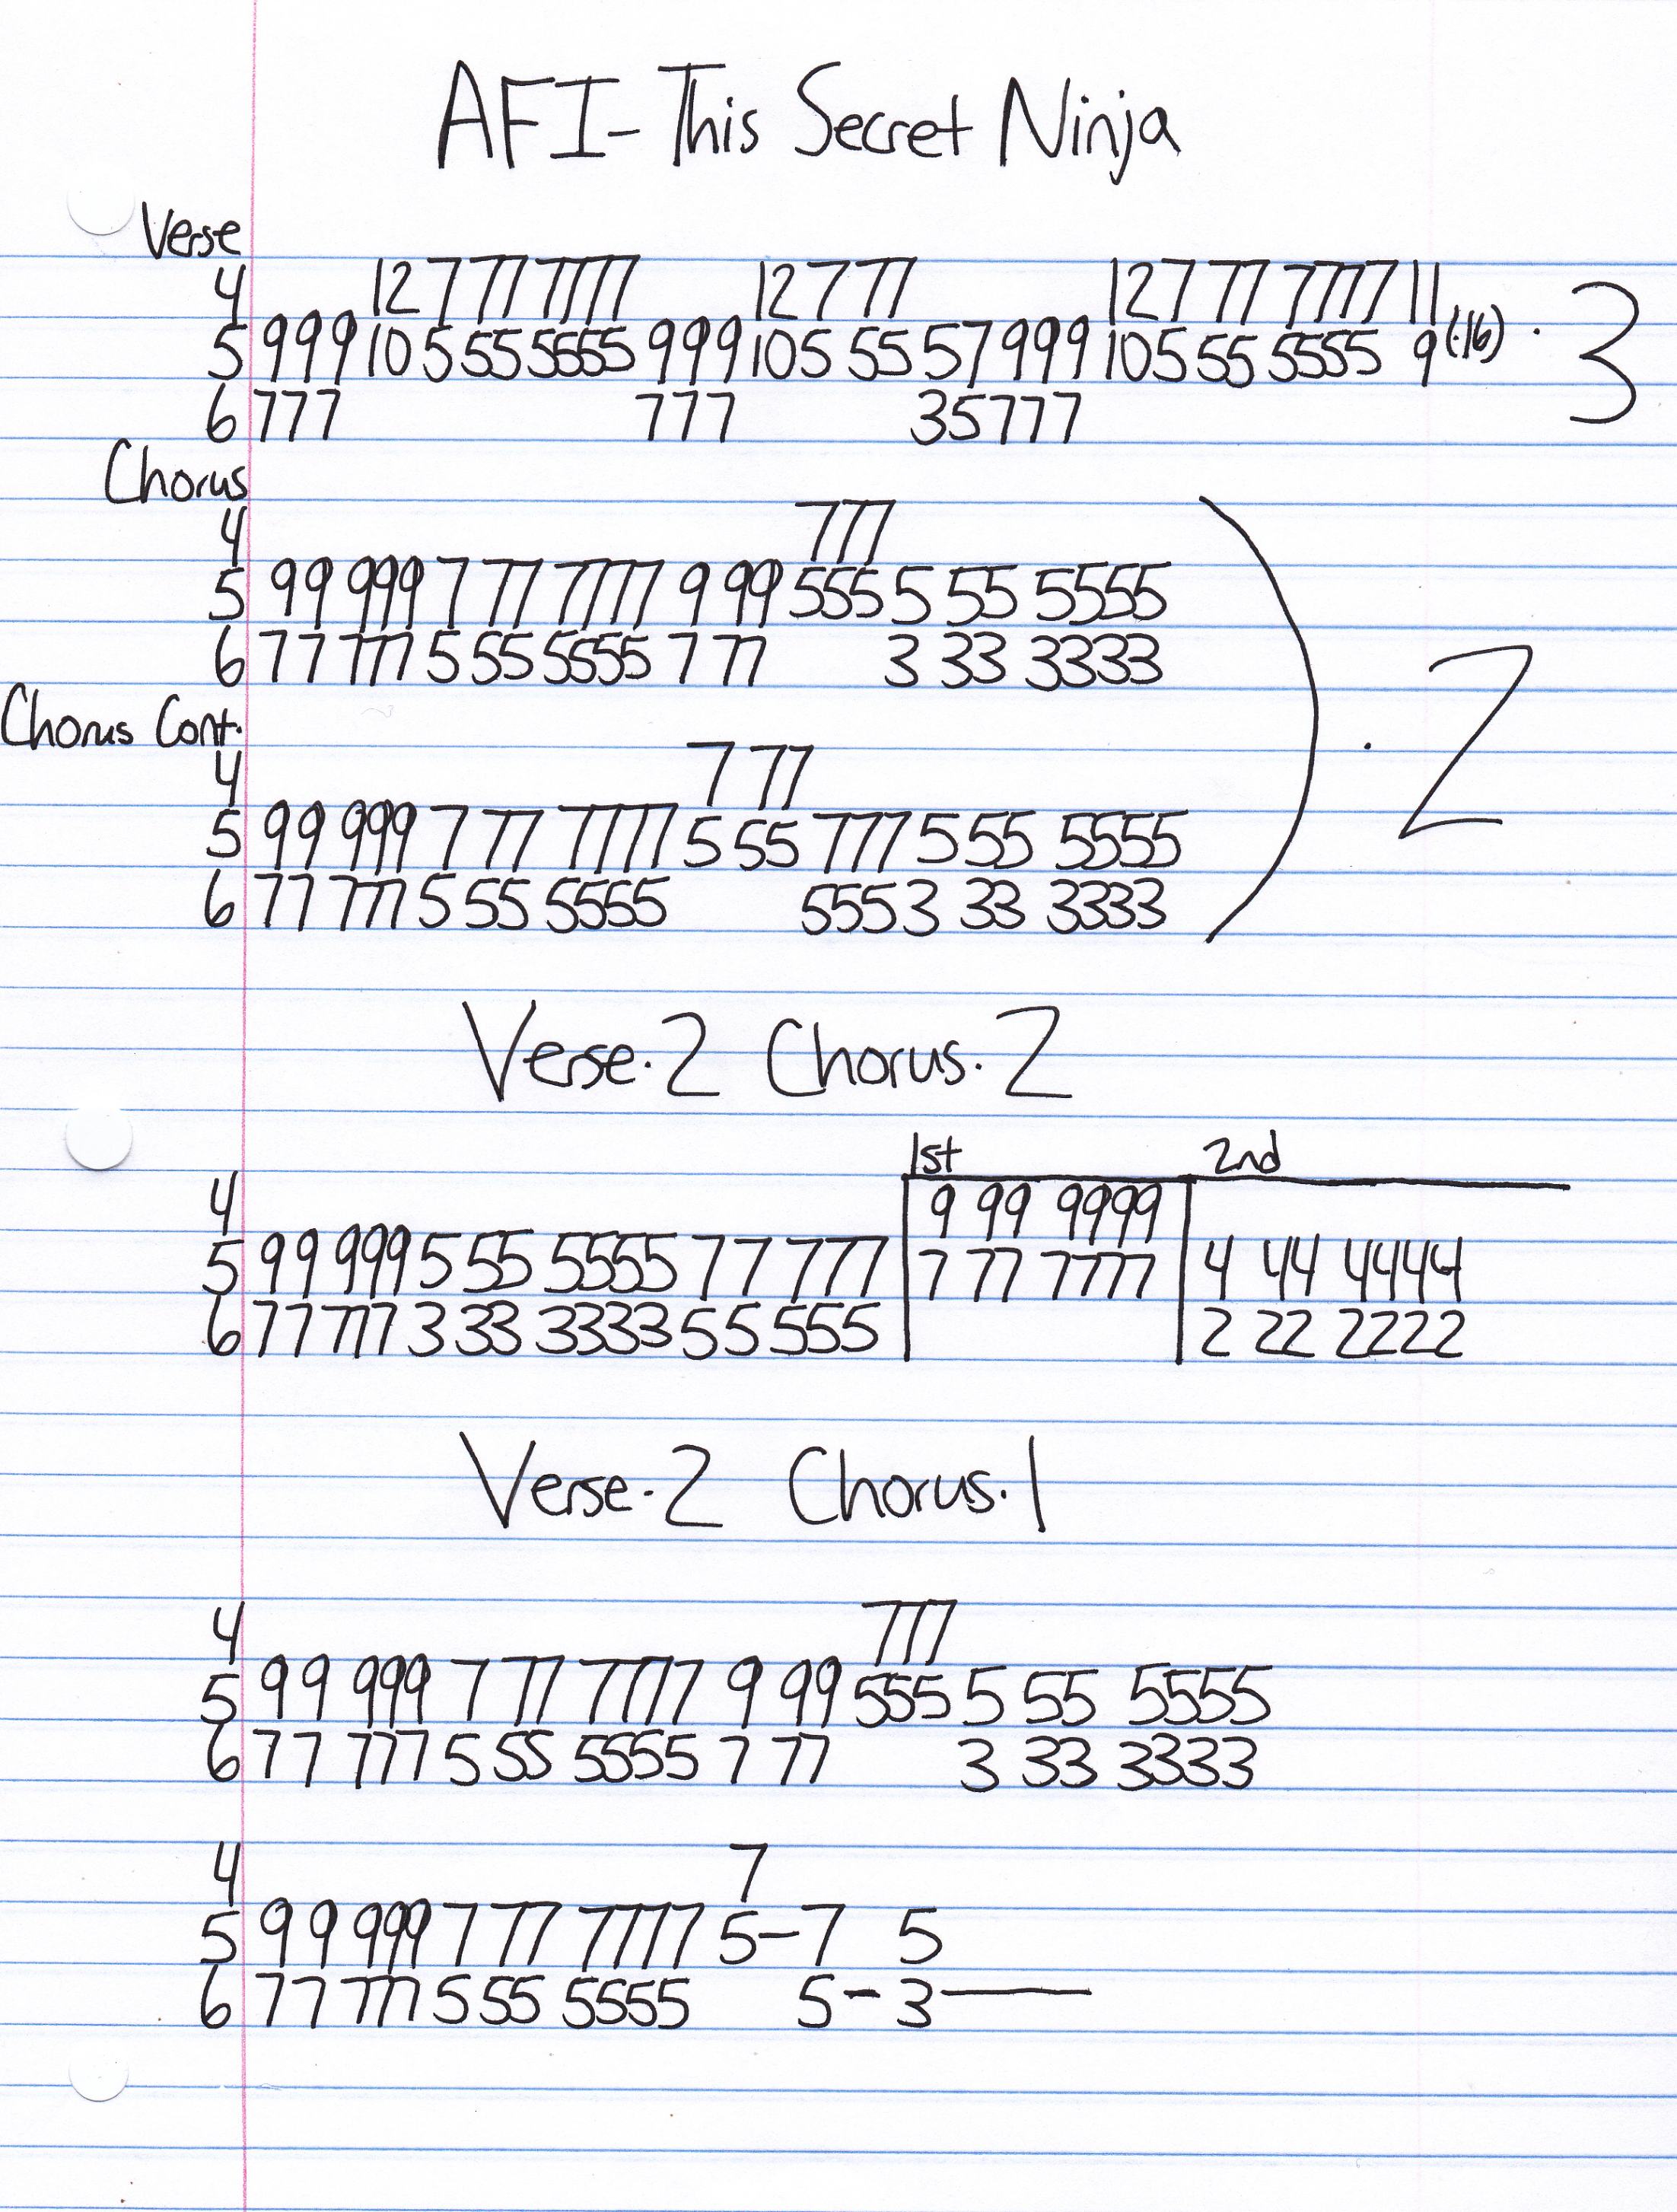 AFI- This Secret Ninja
Verse
4 12 7 77 7777 12 7 77 12 7 77 7777 11
5 999 10 5 55 5555 999 10 5 55 57 999 10 5 55 5555 9 (·16) · 3
6 777 777 35 777
Chorus
4 777
5 99 999 7 77 7777 9 99 555 5 55 5555
6 77 777 5 55 5555 7 77 3 33 3333
Chorus Cont.
4 7 77
5 99 999 7 77 7777 5 55 777 5 55 5555
6 77 777 5 55 5555 555 3 33 3333
· 2
Verse·2 Chorus·2
1st 2nd
4 9 99 9999
5 99 999 5 55 5555 77 777 7 77 7777 4 44 4444
6 77 777 3 33 3333 55 555 2 22 2222
Verse·2 Chorus·1
4 777
5 99 999 7 77 7777 9 99 555 5 55 5555
6 77 777 5 55 5555 7 77 3 33 3333
4 7
5 99 999 7 77 7777 5-7 5
6 77 777 5 55 5555 5-3—